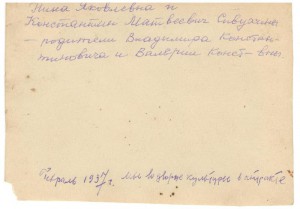 Нина Яковлевна и
Константин Матвеевич
– родители Владимира Констан-
тиновича и Валерии Конст-вны
Февраль 1937 г. мы во дворце культуры в